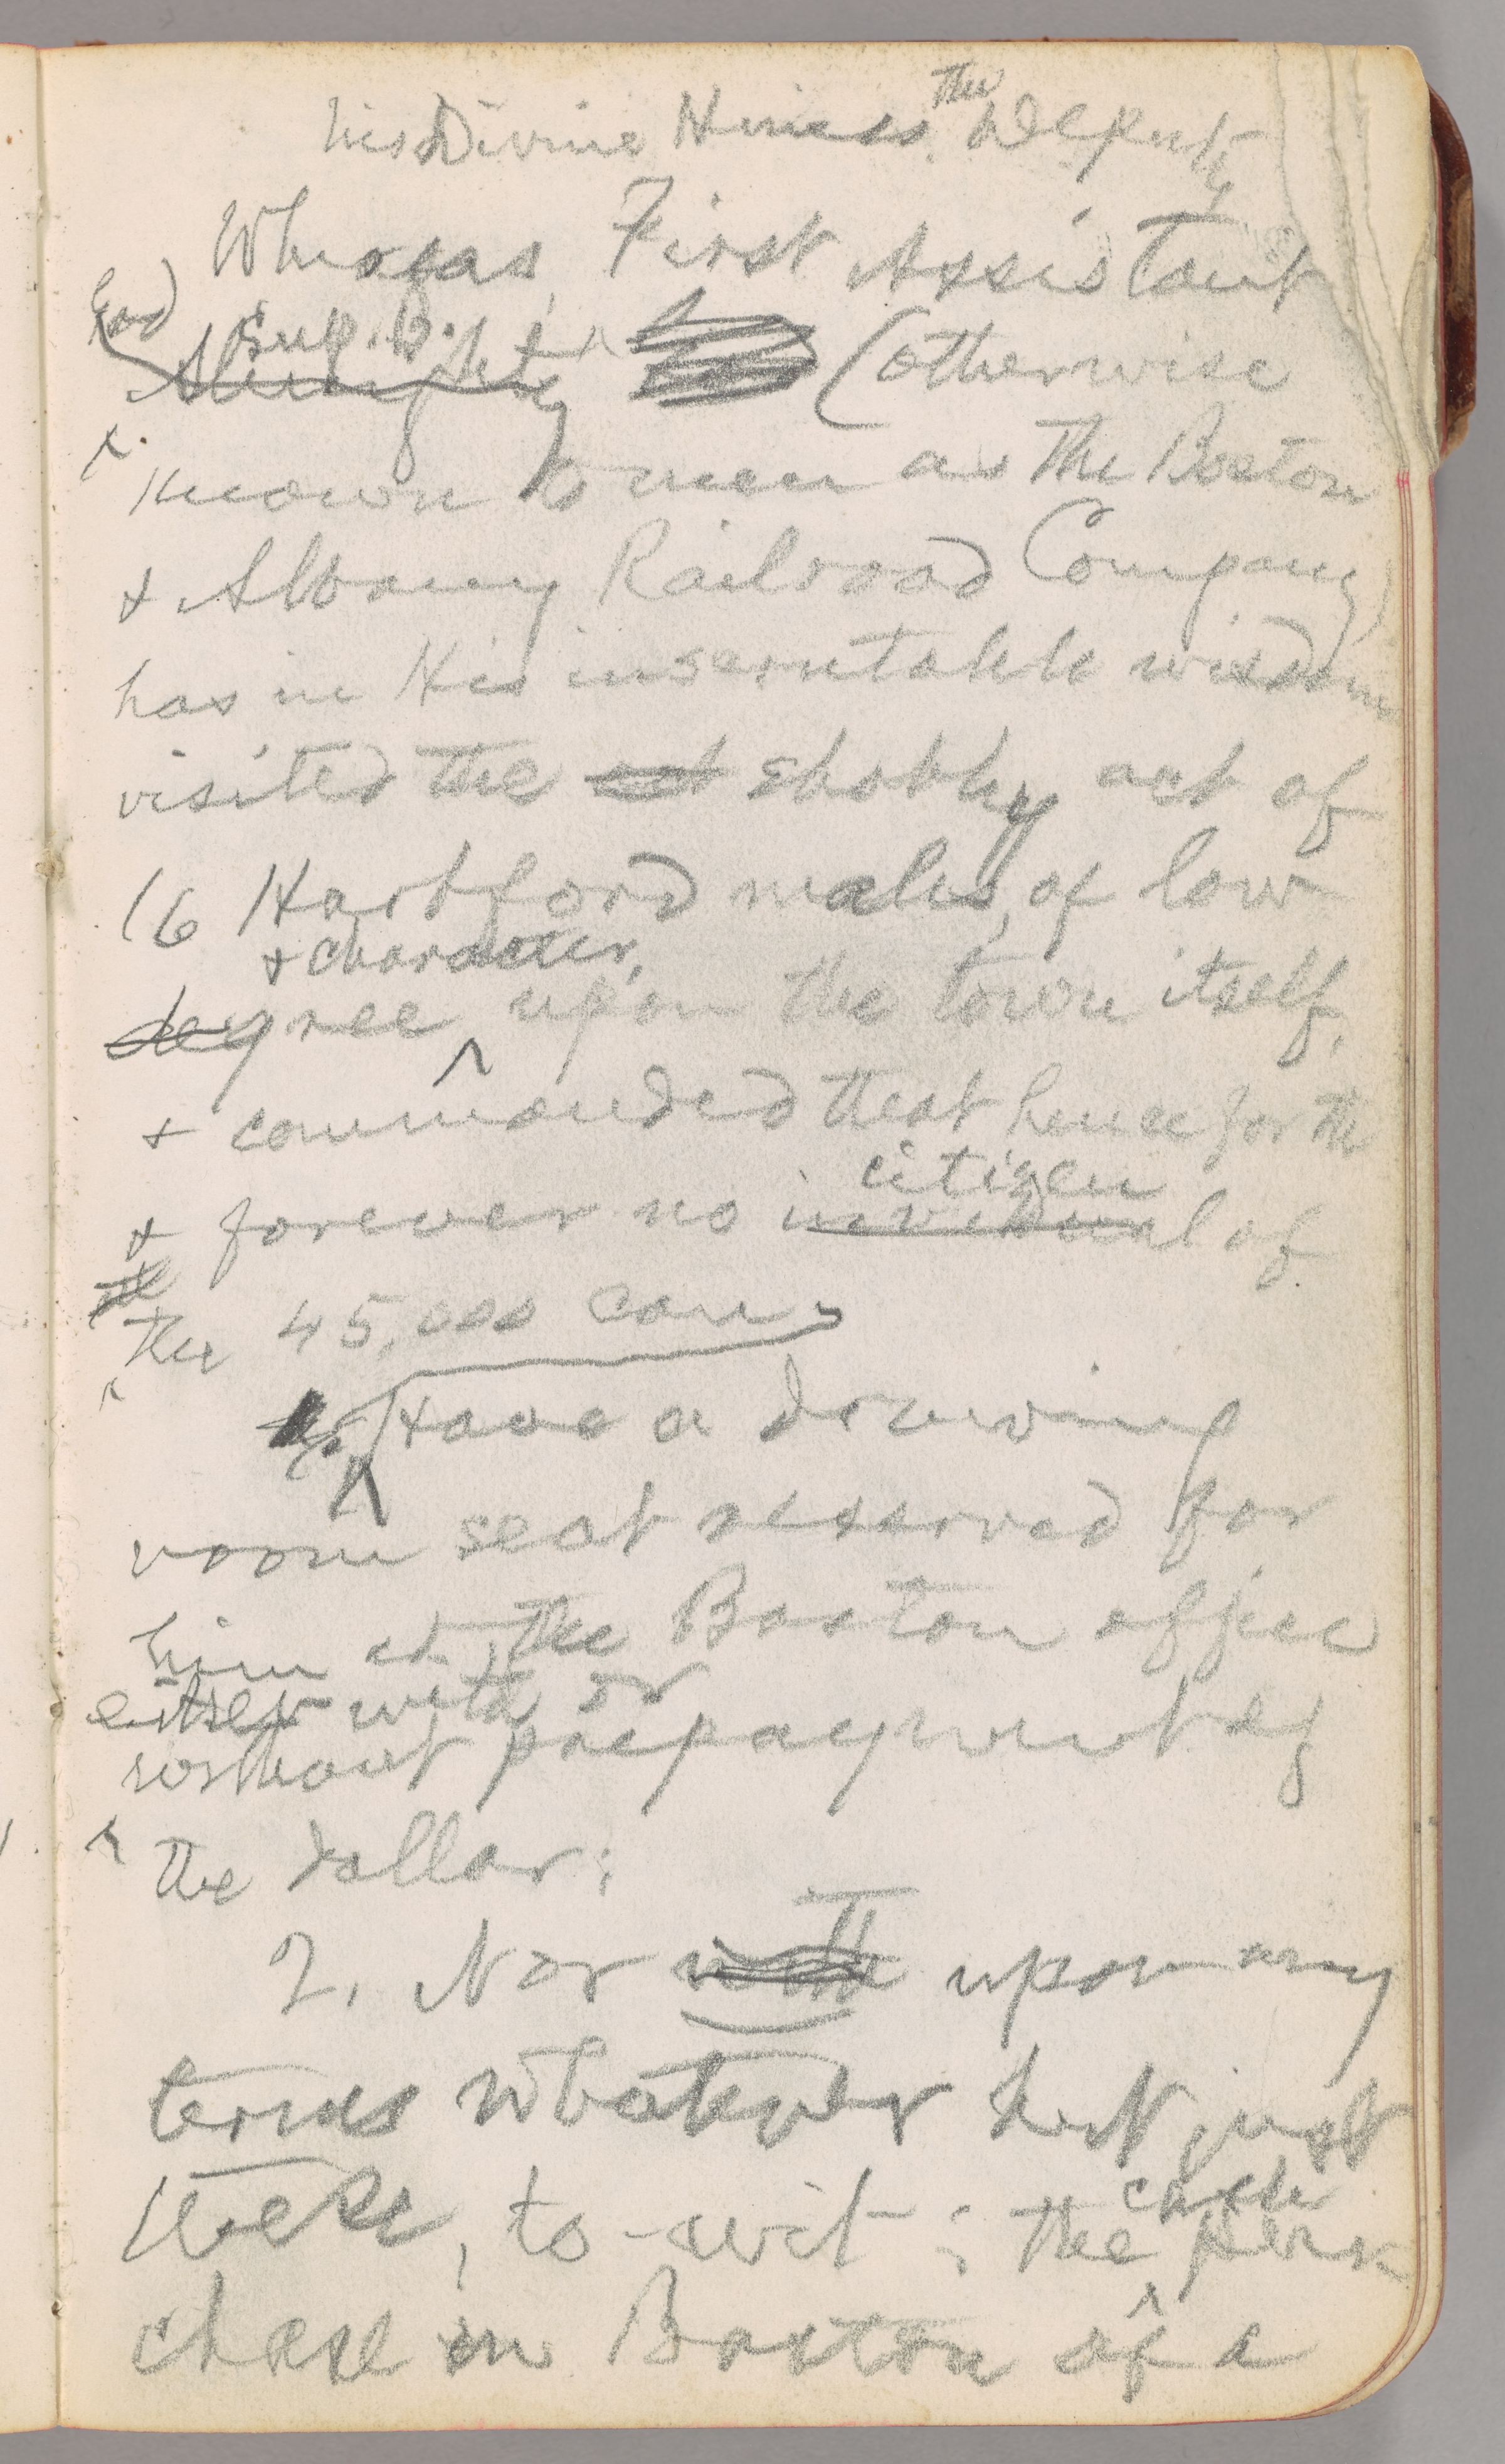 his Divine Hiness, the Deputy
Whereas, First Assistant
God
Sup. B.
Almighty (otherwise
known to men as the Boston
& Albany Railroad Company)
has in His inscrutable wisdom
visited the act shabby act of
16 Hartford males, of low
& character,
degree upon the town itself,
& commanded that henceforth
citizen
& forever no individual of
the 45,000 can
Have a drawing
room seat reserved for
him at the Boston office
either with or
without prepayment of
the dollar:
2. Nor with upon any
terms whatever but just
cash
these, to-wit: the pur-
chase in Boston of a